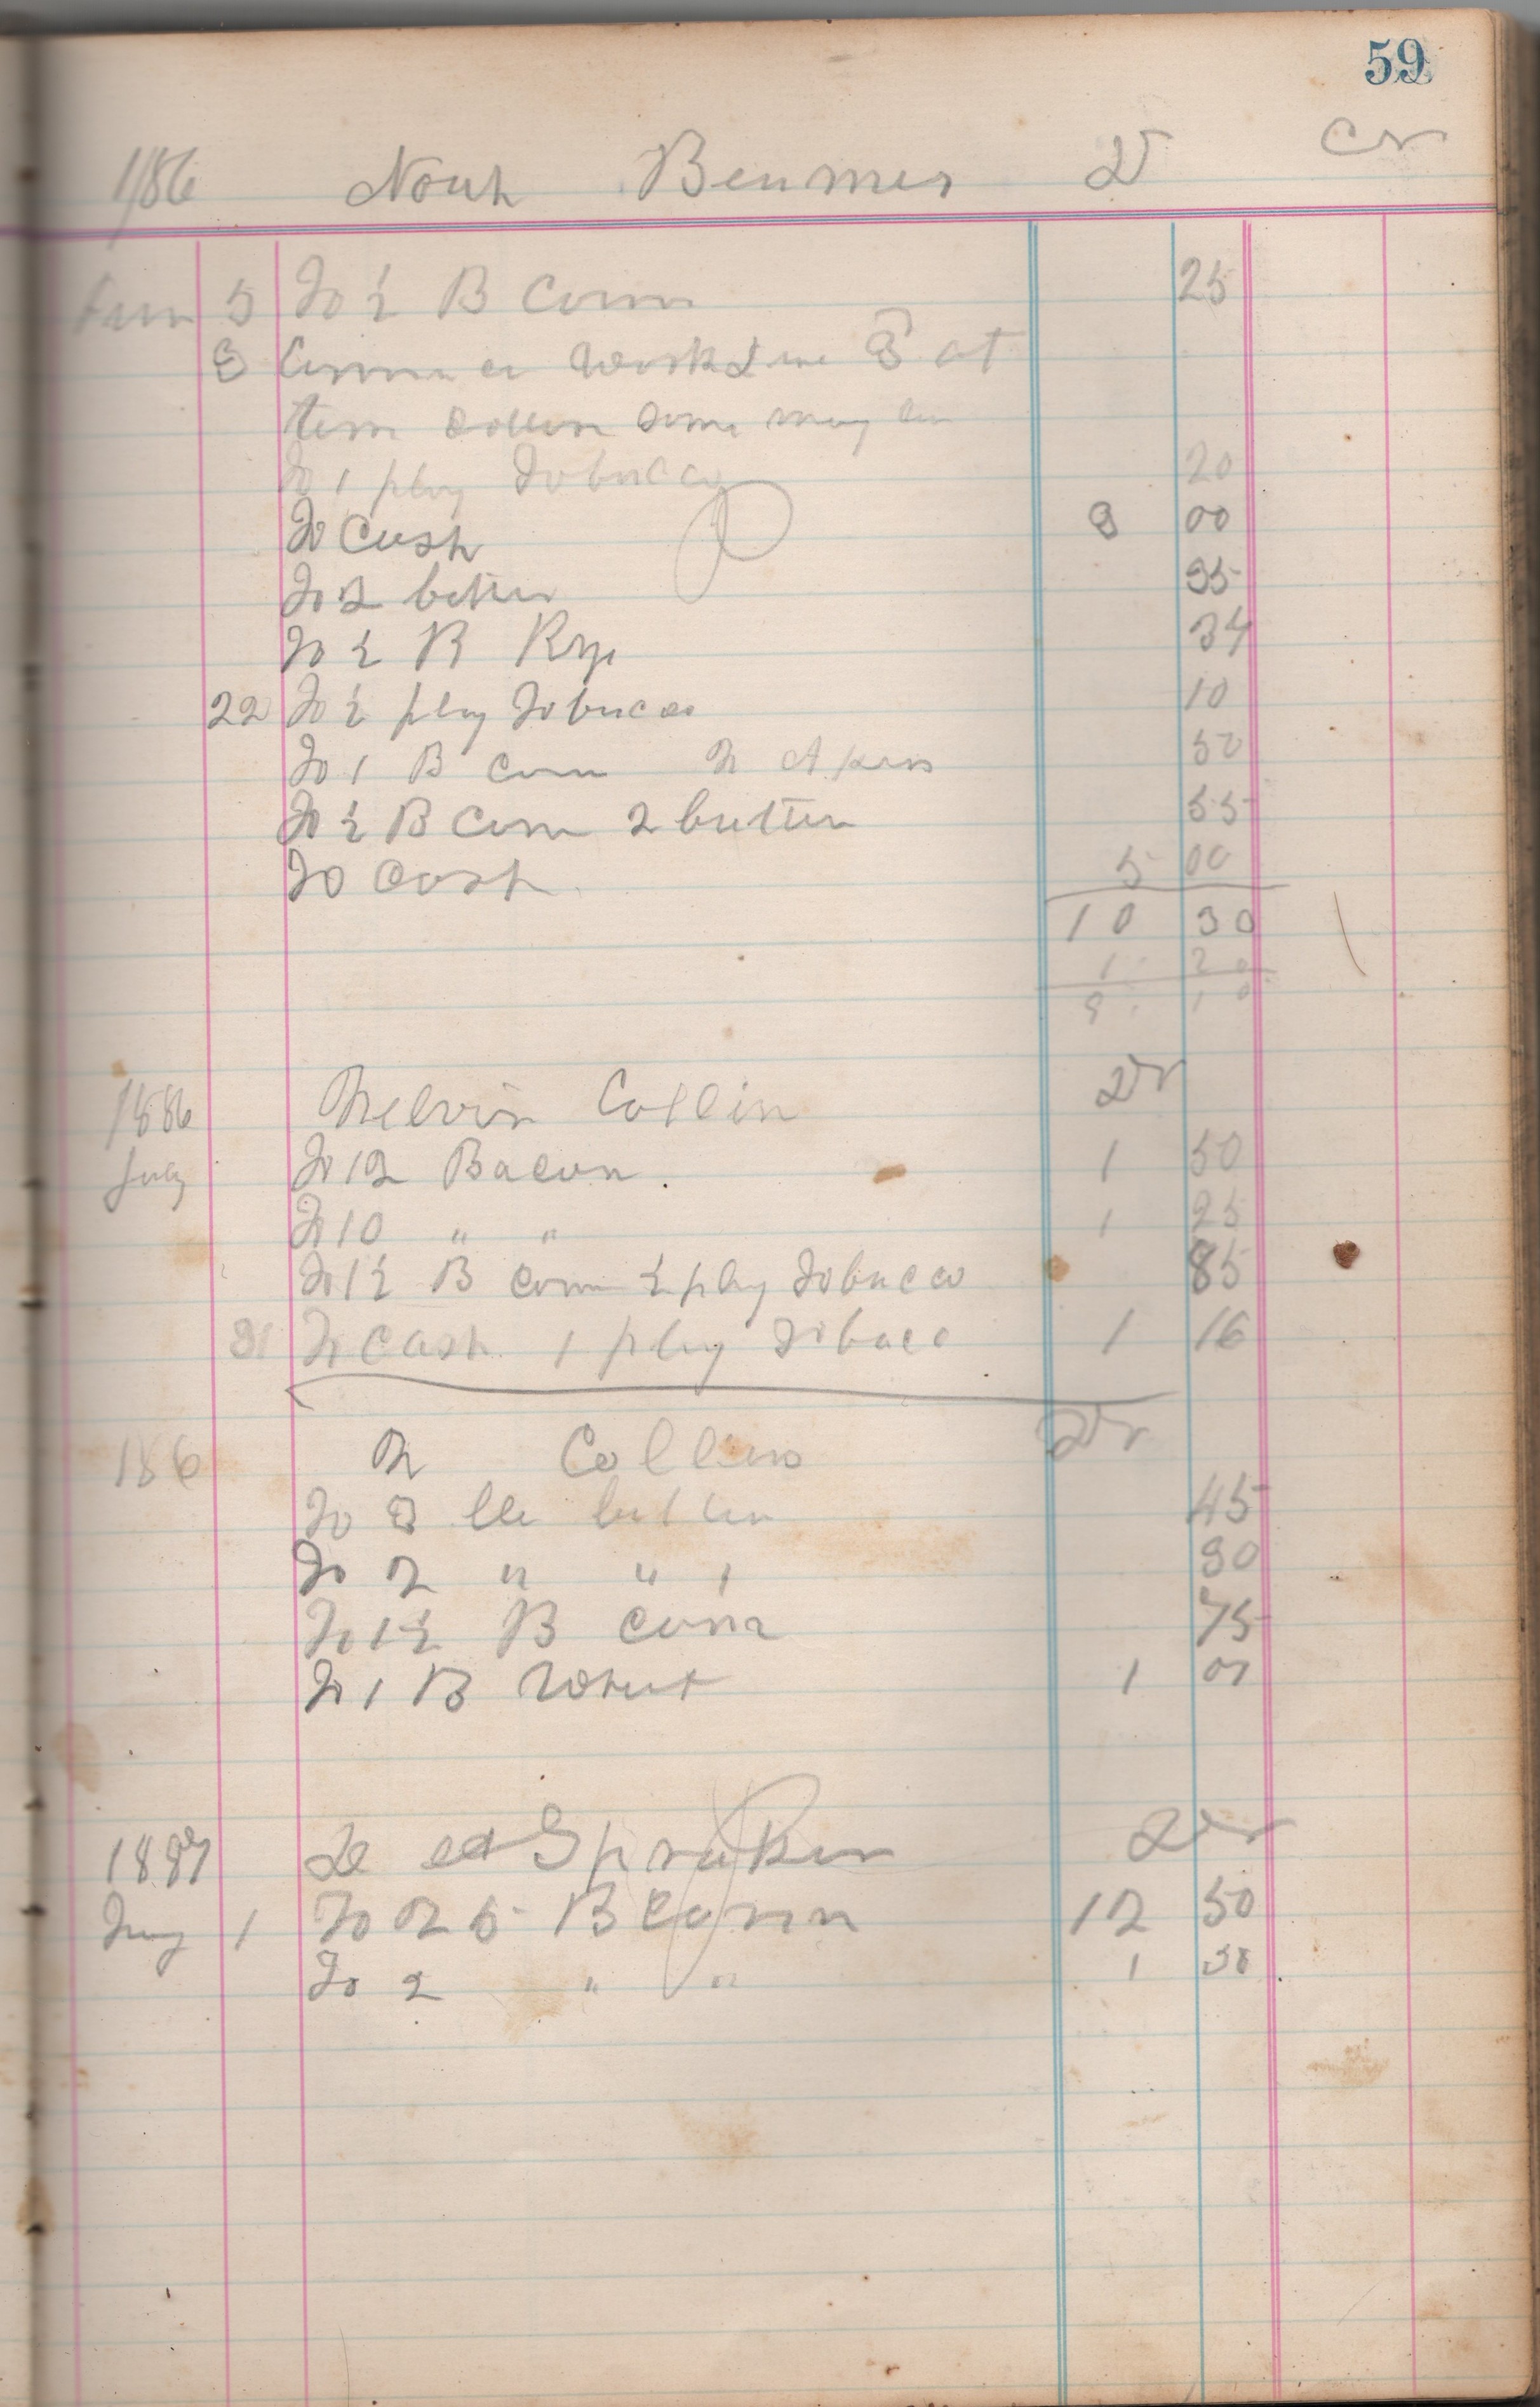 59
1886 Noah Beamer Dr Cr
5 To ½ B Corn 25
8 at
To 1 plug Tobacco 20
To Cash 3 00
To 2 35
To ½ B Rye 34
22 To ½ plug Tobacco 10
To 1 B Corn 50
To ½ B Corn 2 butter 55
To Cash 5 00
10 30
1 20
9 10
1886 Melvin Collin Dr
July To 12 Bacon 1 50
To 10 " " 1 25
To 1½ B corn ½ plug Tobacco 85
31 To Cash 1 plug Tobacc 1 16
186 M Collins Dr
To 3 butter 45
To 2 " " 30
To 1½ B Corn 75
To 1 B Wheat 1 00
1887 Spraker Dr
1 To 25 B Corn 12 50
To 2 " " 1 50